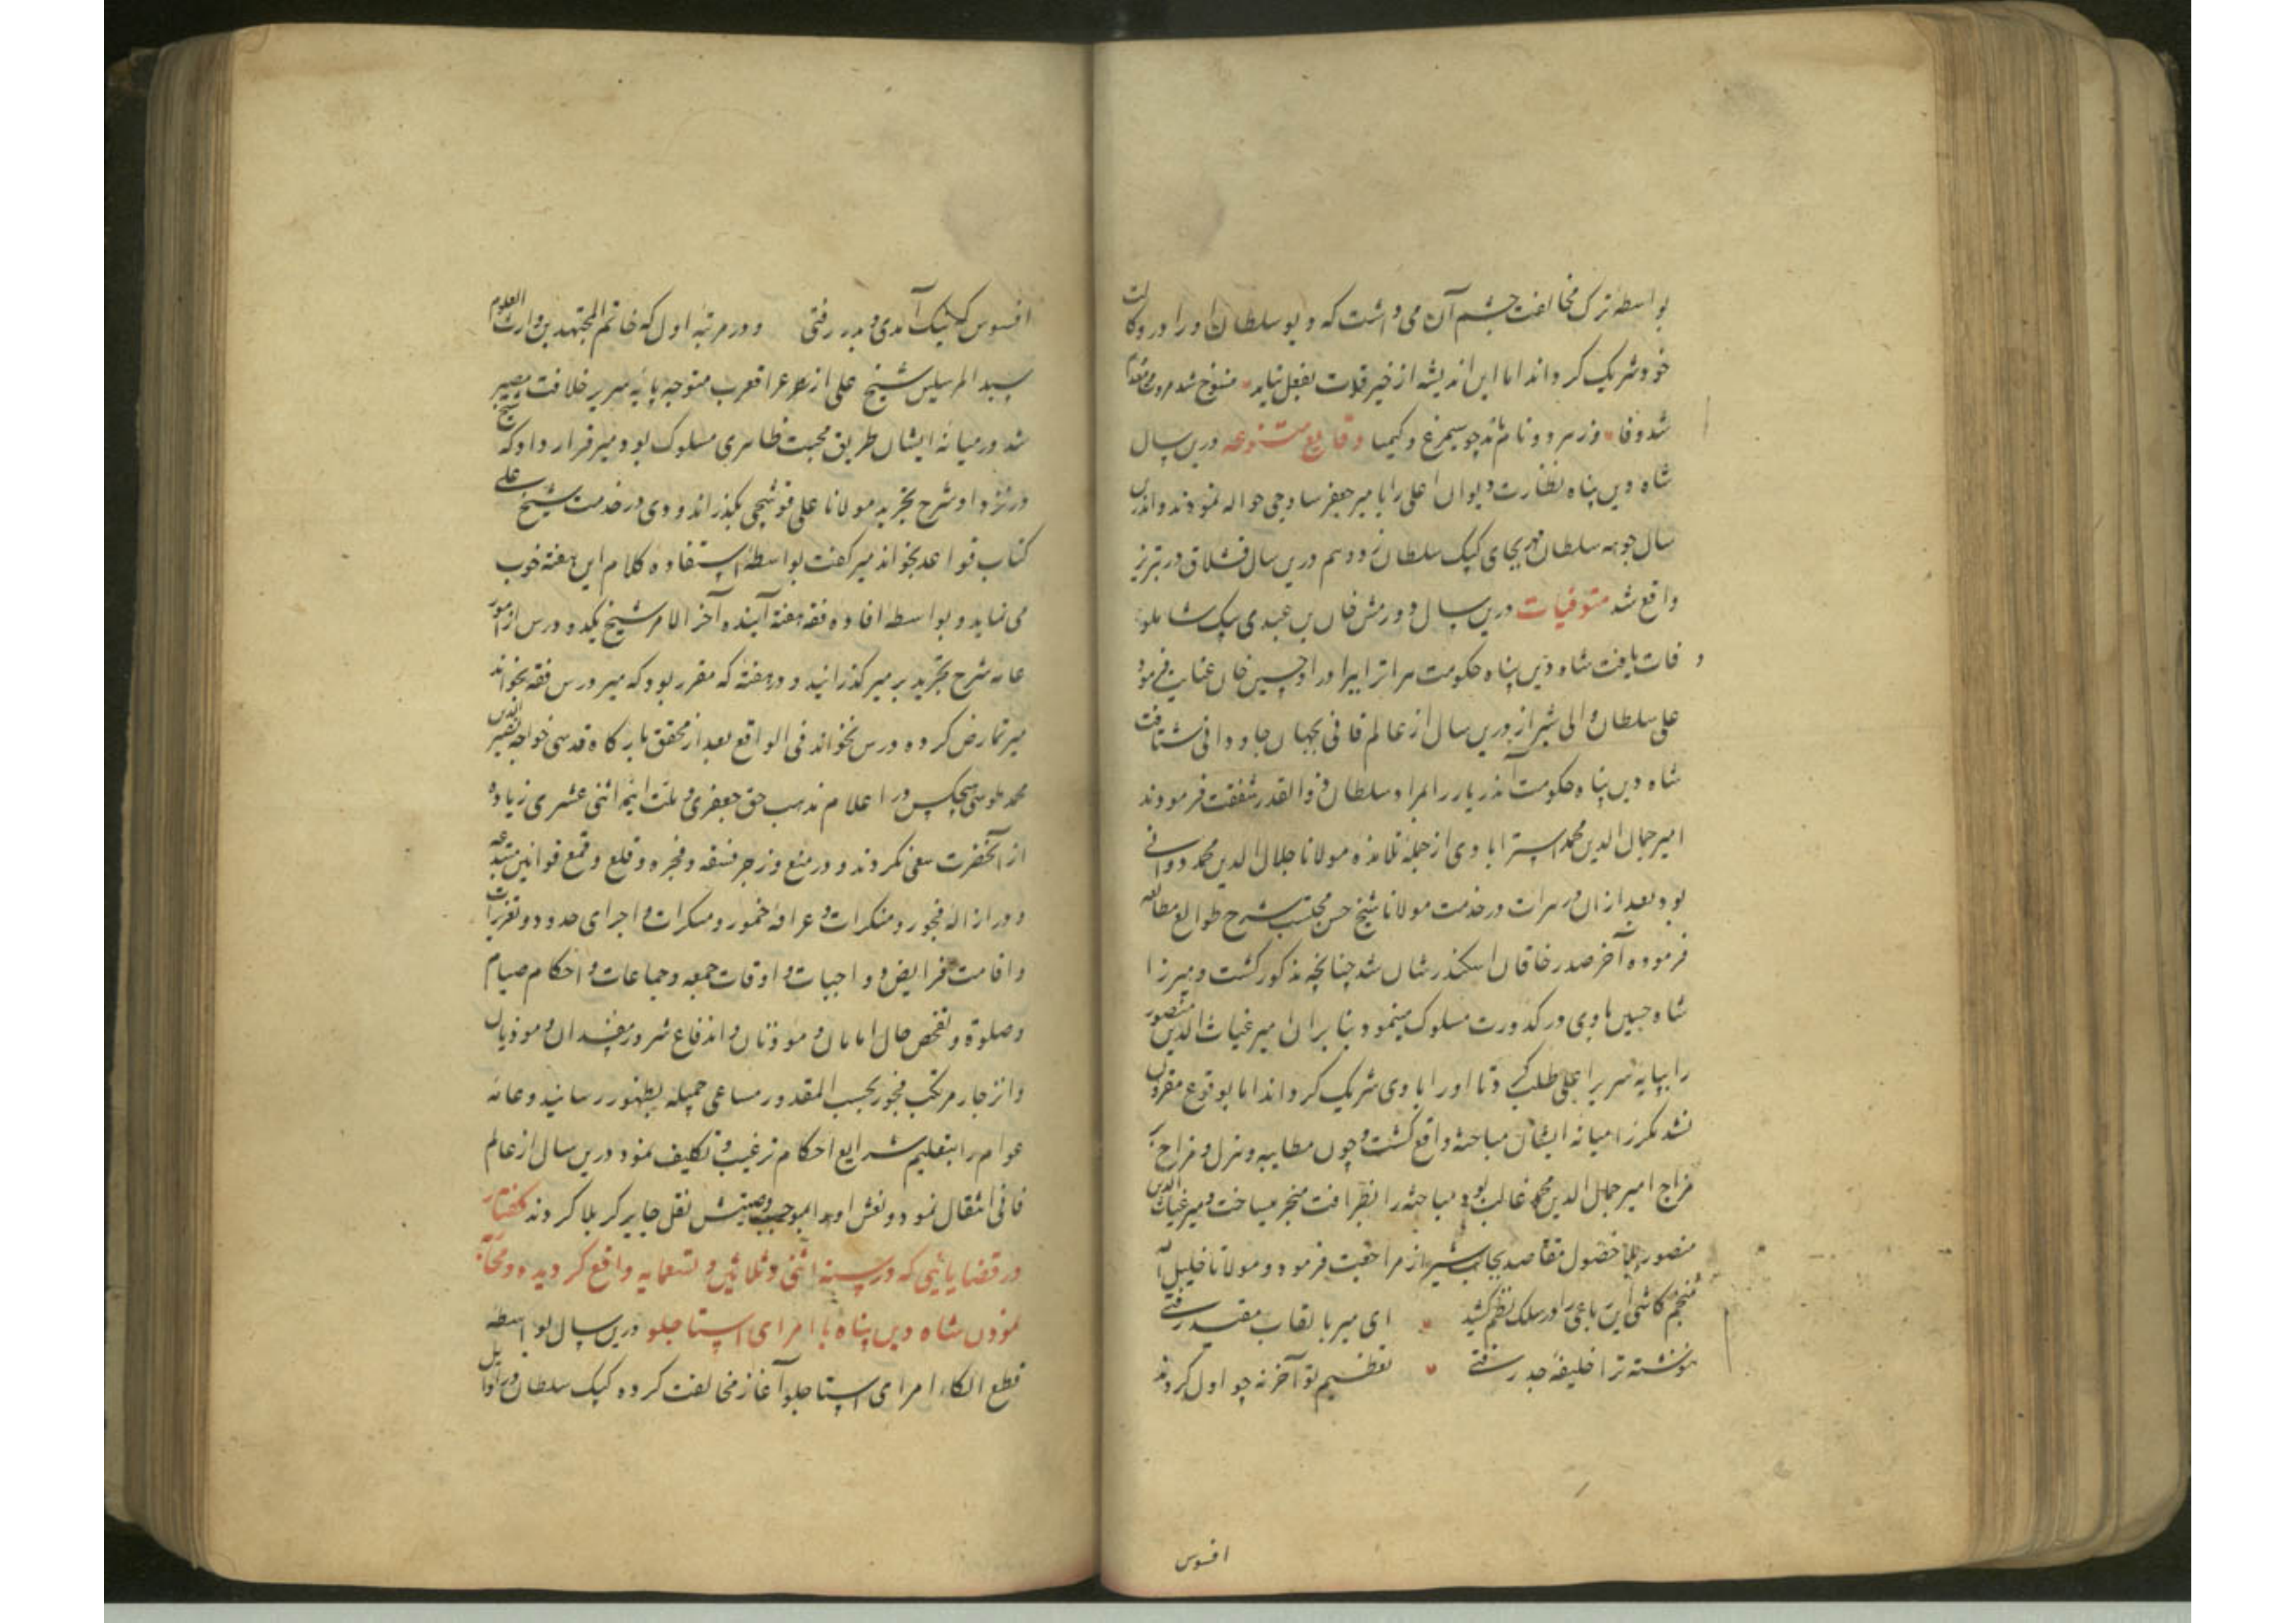 بواسطه ترک مخالفت چشم آن می داشت که دیو سلطان او را در وکالت
خود شریک کرداند اما این اندیشه از خیر قوت بفعل نیامد منسوخ شد مروت و معدوم
شد وفا وز هر دو نام ماند چو سیمرغ و کیمیا وقایع متنوعه درین سال
شاه دین پناه نظارت دیوان اعلی را با میر جعفر ساوجی حواله نمودند و اندرین
سال جوهه سلطان بجای کپک سلطان زو دهم درین سال قشلاق در تبریز
واقع شد متوفیات درین سال دورمش خان بن عبدی بیک شاملو
وفات یافت شاه دین پناه حکومت هرات را ببرادر او حسین خان عنایت فرمود
علی سلطان والی شیراز درین سال از عالم فانی بجهان جاودانی شتافت
شاه دین پناه حکومت آن دیار را بمراد سلطان ذوالقدر شفقت فرمودند
امیر جمال الدین محمد استرابادی از جمله تلامذه مولانا جلال الدین محمد دوانی
بود بعد ازان در هرات در خدمت مولانا شیخ حسن محتسب شرح طوالع مطالعه
فرموده آخر صدر خاقان اسکندر شان شد چنانچه مذکور گشت و میرزا
شاه حسین با وی در کدورت مسلوک مینمود بنابران میر غیاث الدین منصور
را بپایه سریر اعلی طلب کرد تا او را با وی شریک کرداند اما بوقوع مقرون
نشد مکررا میانه ایشان مباحثه واقع گشت و چون مطایبه و هزل و مزاح بر
مزاج امیر جمال الدین محمد غالب بود مباحثه را بظرافت منجر میساخت و میر غیاث الدین
منصور بلا حصول مقاصد بجانب شیراز مراجعت فرمود و مولانا خلیل الله
منجم کاشی این رباعی را در سلک نظم کشید ای میر با لقاب مقید رفتی
ننوشته ترا خلیفه جد رفتی تعظیم تو آخر نه چو اول کردند
افسوس
افسوس که نیک آمدی و بد رفتی و در مرتبه اول که خاتم المجتهدین وارث العلوم
سید المرسلین شیخ علی از عراق عرب متوجه پایه سریر خلافت مصیر
شد در میانه ایشان طریق محبت ظاهری مسلوک بود میر قرار داد که شیخ
در نزد او شرح تجرید مولانا علی قوشچی بگذراند و وی در خدمت شیخ علی
کتاب قواعد بخواند میر گفت بواسطه استفاده کلام این هفته خوب
می نماید و بواسطه افاده فقه هفته آینده آخر الامر شیخ یکدو درس از امور
عامه شرح تجرید بر میر گذرانید و در هفته که مقرر بود که میر درس فقه بخواند
میر تمارض کرده درس نخواند فی الواقع بعد از محقق بارگاه قدسی خواجه نصیر الدین
محمد طوسی هیچکس در اعلام مذهب حق جعفری و ملت ائمه اثنی عشری زیاده
از آنحضرت سعی نکردند و در منع و زجر فسقه و فجره و قلع و قمع قوانین مبتدعه
و در ازاله فجور و منکرات و عراقه خمور و مسکرات و اجرای حدود و تعزیرات
و اقامت فرایض و واجبات و اوقات جمعه و جماعات و احکام صیام
و صلوة و تفحص حال امامان و موذنان و اندفاع شرور مفسدان و موذیان
و انزجار مرتکب فجور بحسب المقدور مساعی جمیله بظهور رسانید و عامه
عوام را بتعلیم شرایع احکام ترغیب و تکلیف نمود درین سال از عالم
فانی انتقال نمود و نعش او را بموجب وصیتش نقل حایر کربلا کردند گفتار
در قضایائی که در سنه اثنی و ثلاثین و تسعمایه واقع گردیده و محاربه
نمودن شاه دین پناه با امرای استاجلو درین سال بواسطه
قطع الکاء امرای استاجلو آغاز مخالفت کرده کپک سلطان در اوایل